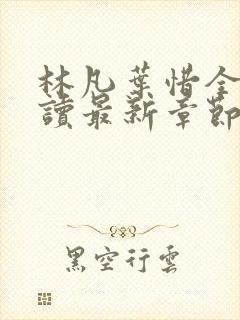 林凡葉惜全
讀最新章節
黑空行雲